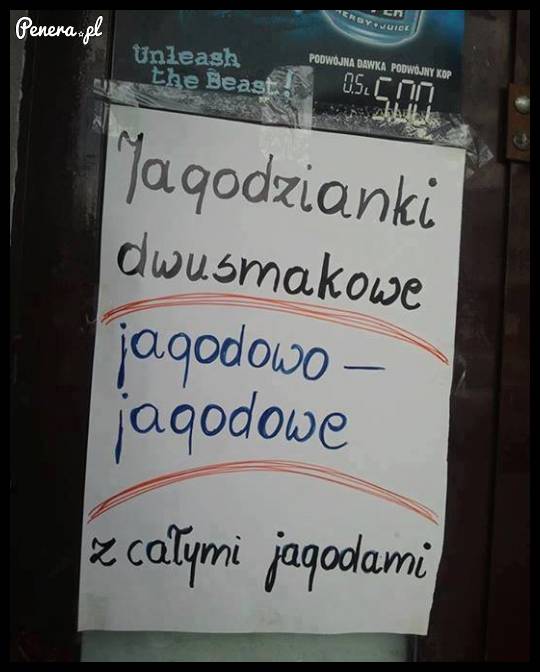 Penera.pl
ENERGY+JUICE
Unleash
the Beast!
PODWÓJNA DAWKA PODWÓJNY KOP
0.5L 500
Jagodzianki
dwusmakowe
jagodowo –
jagodowe
z całymi jagodami